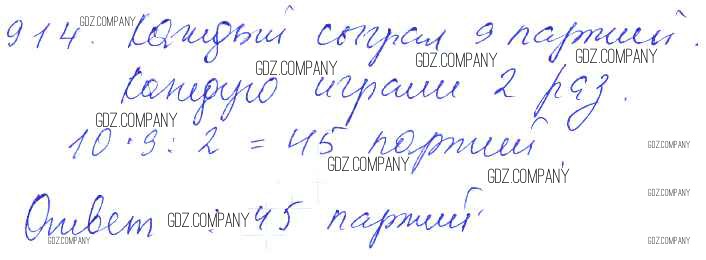 914. Каждый сыграл 9 партий.
Каждую играли 2 раз.
10 · 9 : 2 = 45 партий.
Ответ : 45 партий
GDZ.COMPANY
GDZ.COMPANY
GDZ.COMPANY
GDZ.COMPANY
GDZ.COMPANY
GDZ.COMPANY
GDZ.COMPANY
GDZ.COMPANY
GDZ.COMPANY
GDZ.COMPANY
GDZ.COMPANY
GDZ.COMPANY